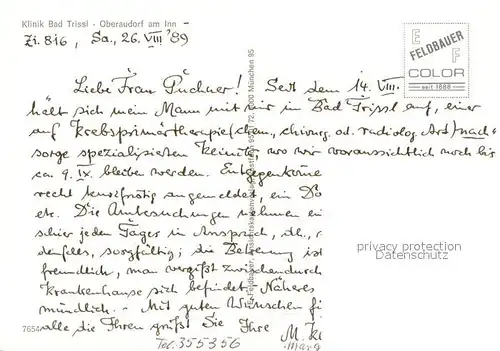 Klinik Bad Trissl - Oberaudorf am Inn -
Zi. 816, Sa., 26. VIII '89
E F
FELDBAUER
COLOR
seit 1888
Liebe Frau Puchner! Seit dem 14. VIII.
hält sich mein Mann mit mir in Bad Trissl auf, einer
auf Krebsprimärtherapie (chirurg. od. radiolog. Art) nach-
sorge spezialisierten Klinik, wo wir voraussichtlich noch bis
ca. 9. IX. bleiben werden. Entgegenkomme
recht kurzfristig angemeldet, ein Do
etc. Die Untersuchungen nehmen ei
schier jeden Tages in Anspruch, dh.,
denfalls, sorgfältig; die Betreuung ist
freundlich, man vergißt zwischendurch
Krankenhause sich befindet. Näheres
mündlich. - Mit guten Wünschen fü
alle die Ihren grüßt Sie Ihre M. K
7654
Tel. 355356
privacy protection
Datenschutz